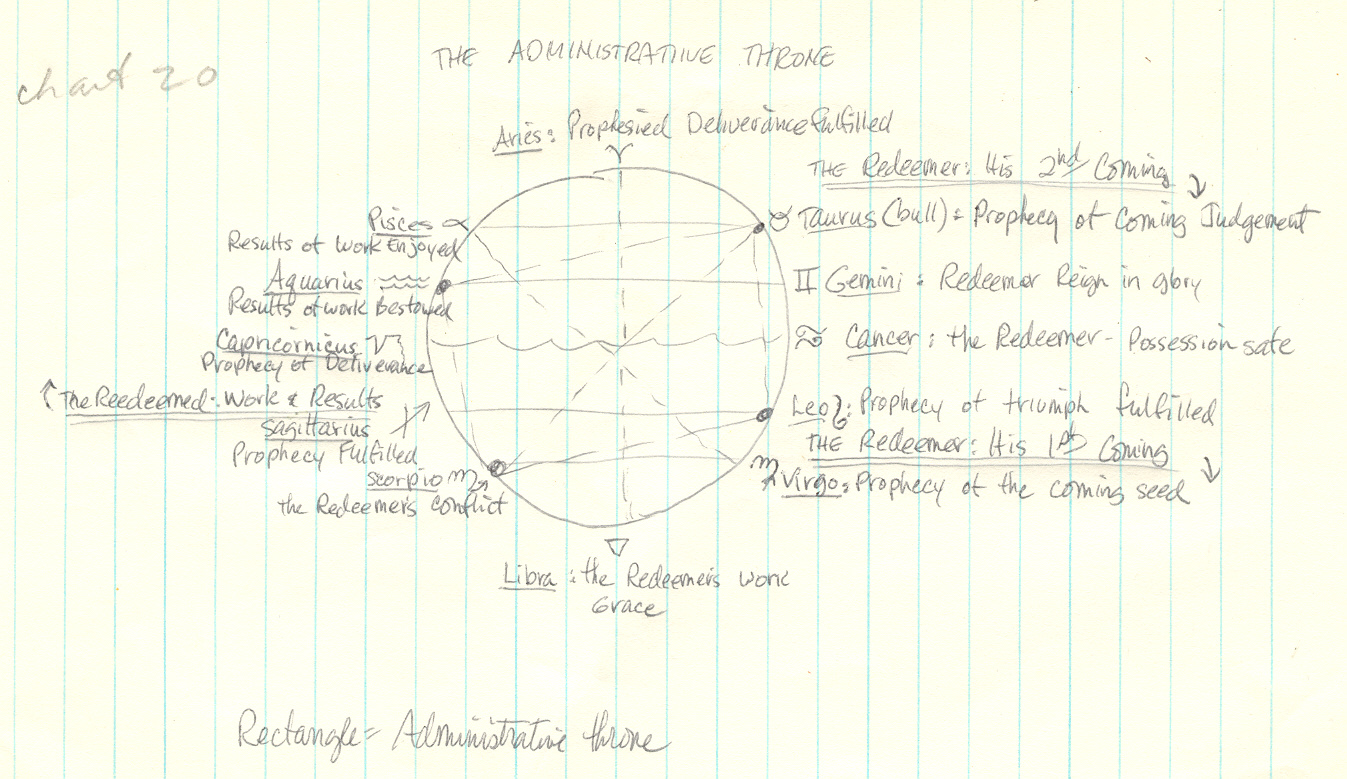 chart 20
THE ADMINISTRATIIVE THRONE
Aries: Prophesied Deliverance fulfilled
THE Redeemer: His 2nd Coming
Pisces
Results of work Enjoyed
Taurus (bull) = Prophecy of Coming Judgement
Aquarius
Results of work Bestowed
Gemini: Redeemer Reign in glory
Capricornicus
Prophecy of Deliverance
Cancer: the Redeemer - Possession safe
The Reedeemed: Work & Results
Leo: Prophecy of triumph fulfilled
Sagittarius
Prophecy Fulfilled
THE Redeemer: His 1st Coming
scorpio
the Redeemers conflict
Virgo: Prophecy of the coming seed
Libra: the Redeemers work
Grace
Rectangle = Administrative throne